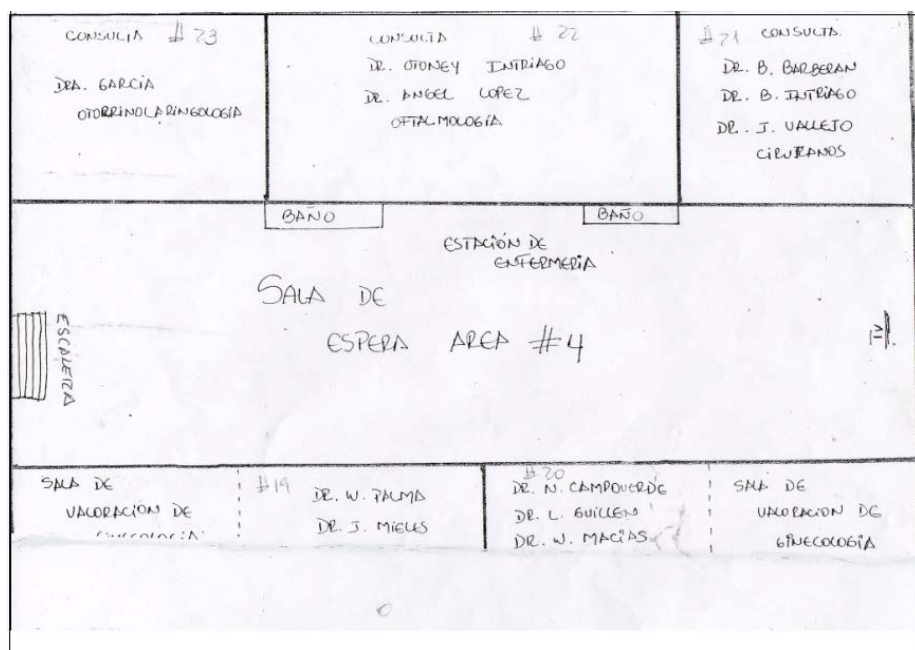 CONSULTA # 23
DRA. GARCÍA
OTORRINOLARINGOLOGÍA
CONSULTA # 22
DR. OTONEY INTRIAGO
DR. ANGEL LOPEZ
OFTALMOLOGÍA
#21 CONSULTA.
DR. B. BARBERAN
DR. B. INTRIAGO
DR. J. VALLEJO
CIRUJANOS
BAÑO
BAÑO
ESTACIÓN DE
ENFERMERIA
SALA DE
ESPERA AREA #4
ESCALERA
TV
SALA DE
VALORACIÓN DE
#19
DR. W. PALMA
DR. J. MIELES
#20
DR. N. CAMPOVERDE
DR. L. GUILLEN
DR. W. MACÍAS
SALA DE
VALORACION DE
GINECOLOGÍA